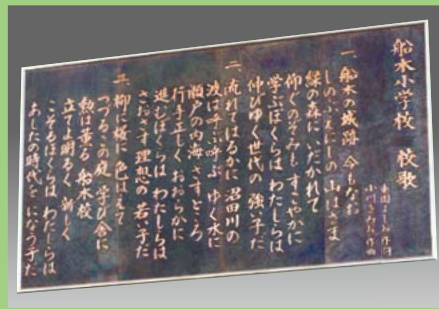 船木小学校 校歌
一 船木の城跡 今もなお
しのぶむにしの 山はざま
緑の森に いだかれて
仰ぐのぞみも すこやかに
学ぶぼくらは わたしらは
伸びゆく世代の 強い子だ
二 流れてはるかに 沼田川の
波は呼ぶ呼ぶ ゆく水に
瀬戸の内海 さすところ
行手正しく おおらかに
進むぼくらは わたしらは
さおさす理想の 若い子だ
三 柳に桜に 色はえて
つづるこの庭 学び舎に
勲は薫る 船木校
立てよ明るく 新しく
こぞるぼくらは わたしらは
あしたの時代を になう子だ